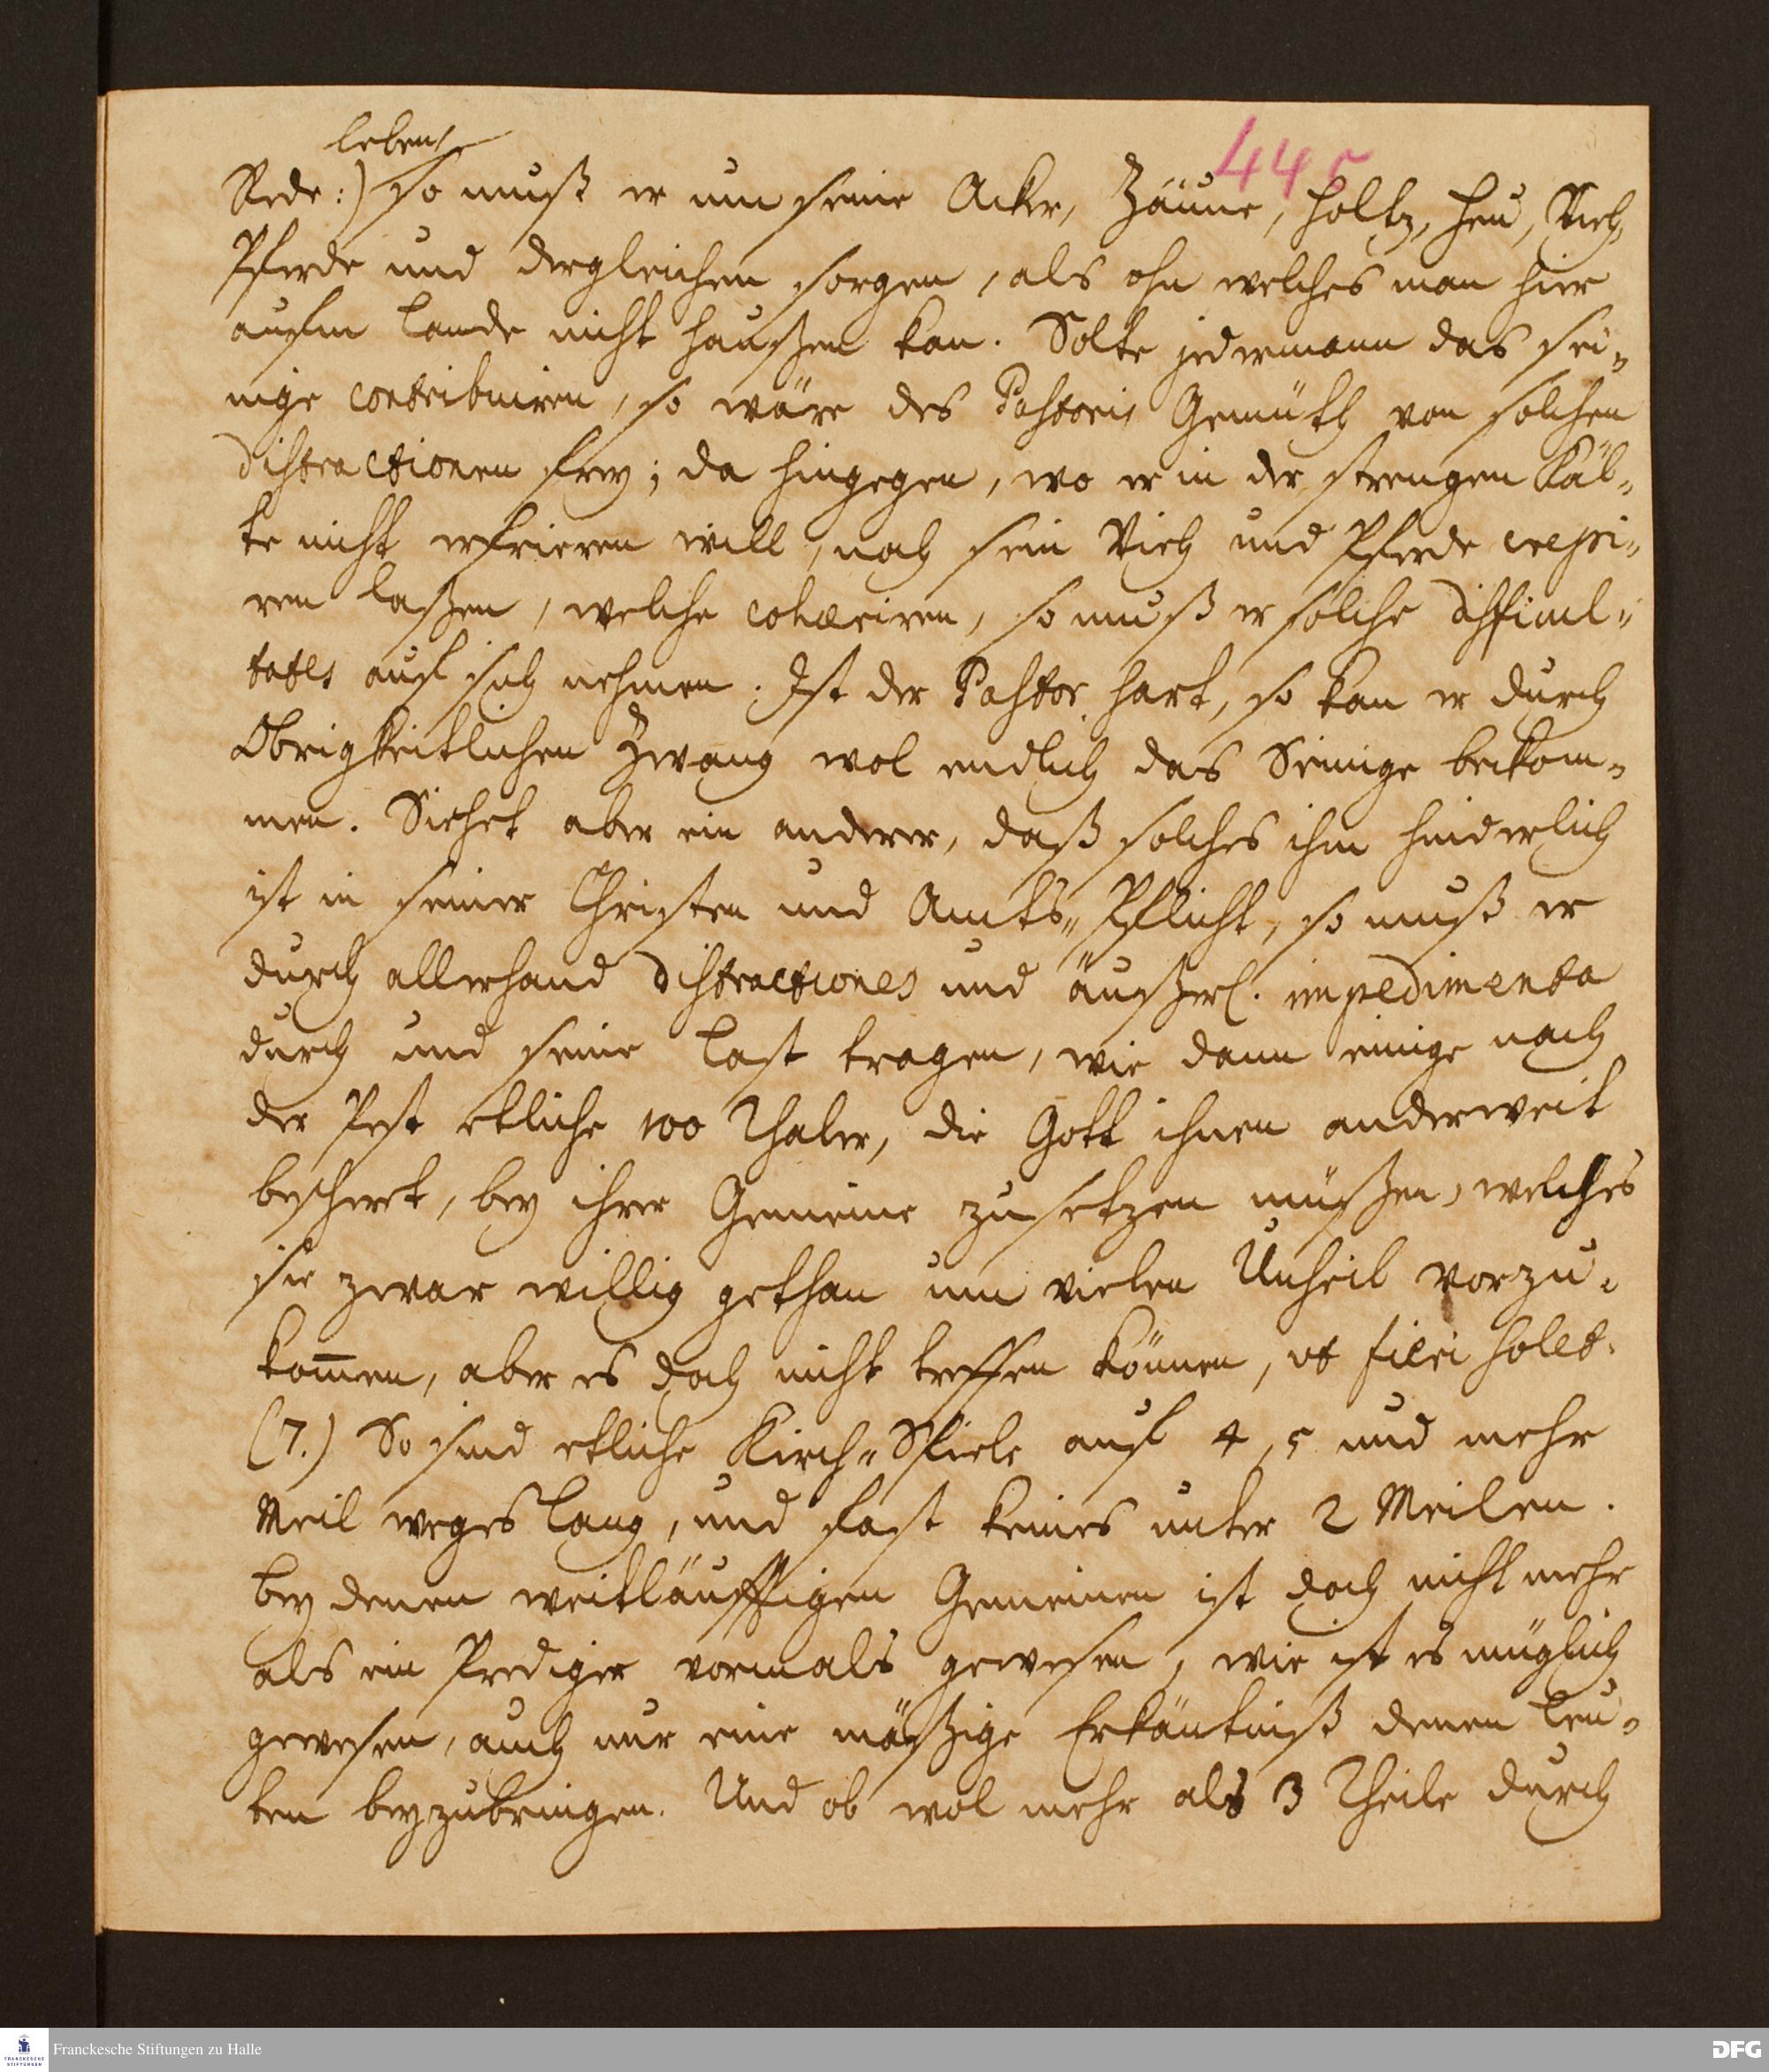 leben
445
Rede:) so muß er um seine Acker, Zäune, Holtz, Heu, Vieh,
Pferde und dergleichen sorgen, als ohn welches man hier
aufm Lande nicht haußen kan. Solte jedermann das sei-
nige contribuiren, so wäre des Pastoris Gemüth von solchen
distractionen frey; da hingegen, wo er in der strengen Käl-
te nicht erfrieren will, noch sein Vieh und Pferde crepi-
ren laßen, welche cohæriren, so muß er solche difficul-
tates auf sich nehmen. Ist der Pastor hart, so kan er durch
Obrigkeitlichen Zwang wol endlich das Seinige bekom-
men. Siehet aber ein anderer, daß solches ihm hinderlich
ist in seiner Christen und Amts-Pflicht, so muß er
durch allerhand distractiones und äußerl. impedimenta
durch und seine Last tragen, wie dann einige nach
der Pest etliche 100 Thaler, die Gott ihnen anderweit
beschert, bey ihrer Gemeine zusetzen müßen, welches
sie zwar willig gethan um vielen Unheil vorzu-
kom̄en, aber es doch nicht treffen können, ut fieri solet.
(7.) So sind etliche Kirch-Spiele auf 4, 5 und mehr
Meil weges lang, und fast keines unter 2 Meilen.
bey denen weitläufftigen Gemeinen ist doch nicht mehr
als ein Prediger vormals gewesen, wie ist es müglich
gewesen, auch nur eine mäßige Erkäntniß denen Leu-
ten beyzubringen. Und ob wol mehr als 3 Theile durch
Franckesche Stiftungen zu Halle
DFG